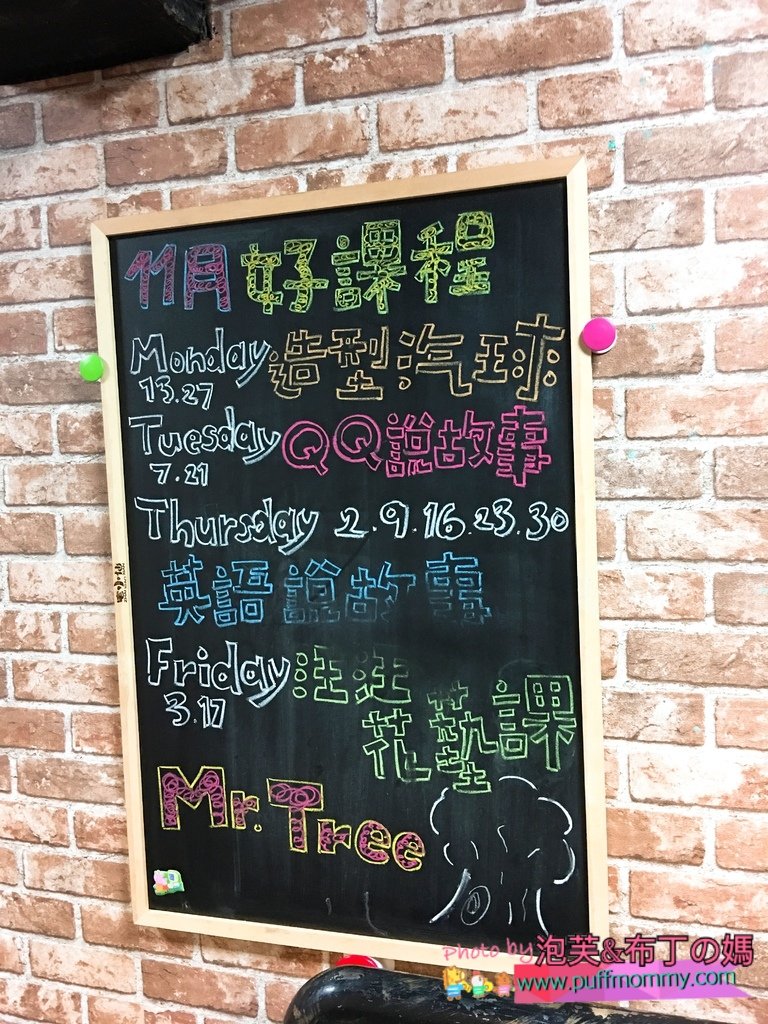 11月好課程
Monday造型汽球
13.27
Tuesday QQ說故事
7.21
Thursday 2.9.16.23.30
英語說故事
Friday汪汪
3.17
花藝課
Mr.Tree
Photo by 泡芙&布丁の媽
www.puffmommy.com